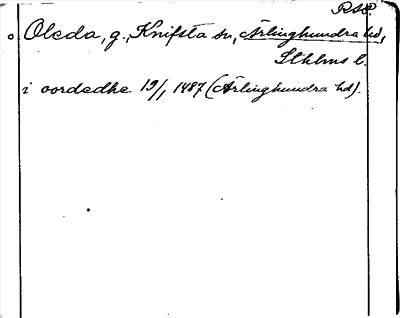 RAP.
Oleda, g., Knifsta sn, Ärlinghundra hd,
Sthlms l.
i oordedhe 19/1 1487 (Ärlinghundra hd).